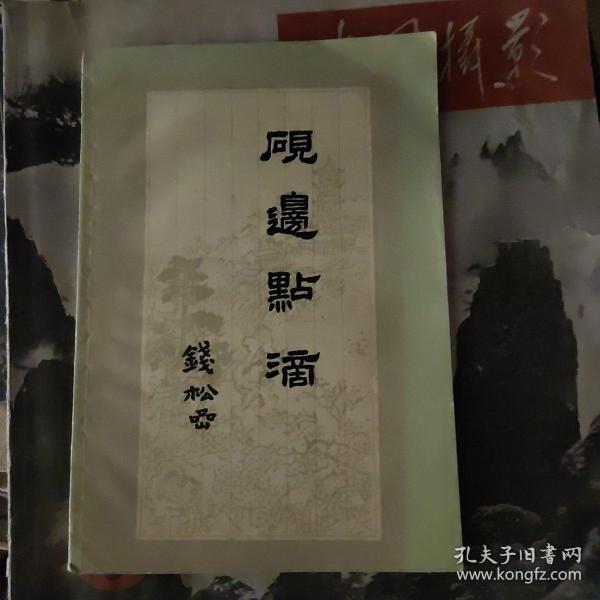 硯邊點滴
錢松嵒
攝影
孔夫子旧书网
www.kongfz.com